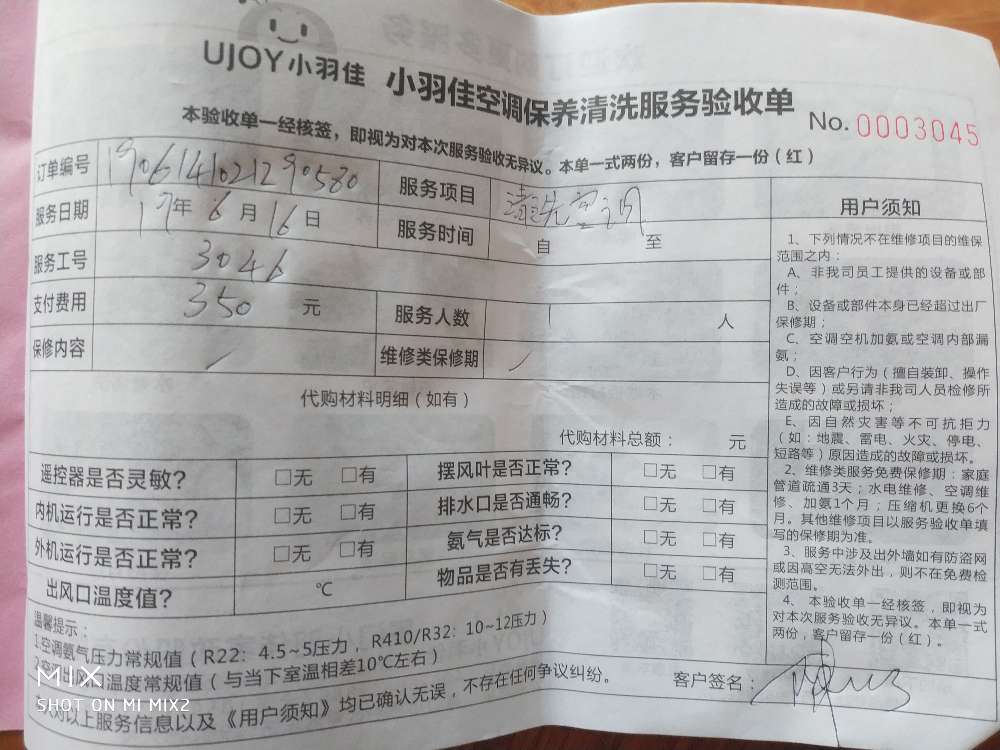 UJOY小羽佳
小羽佳空调保养清洗服务验收单
No. 0003045
本验收单一经核签，即视为对本次服务验收无异议。本单一式两份，客户留存一份（红）
订单编号 1906141021290580 服务项目 清洗空调
服务日期 19年6月16日 服务时间 自 至
服务工号 3046
支付费用 350 元 服务人数 1 人
保修内容 / 维修类保修期 /
代购材料明细（如有）
代购材料总额： 元
遥控器是否灵敏？ □无 □有 摆风叶是否正常？ □无 □有
内机运行是否正常？ □无 □有 排水口是否通畅？ □无 □有
外机运行是否正常？ □无 □有 氨气是否达标？ □无 □有
出风口温度值？ ℃ 物品是否有丢失？ □无 □有
用户须知
1、下列情况不在维修项目的维保
范围之内：
A、非我司员工提供的设备或部
件；
B、设备或部件本身已经超过出厂
保修期；
C、空调空机加氨或空调内部漏
氨；
D、因客户行为（擅自装卸、操作
失误等）或另请非我司人员检修所
造成的故障或损坏；
E、因自然灾害等不可抗拒力
（如：地震、雷电、火灾、停电、
短路等）原因造成的故障或损坏。
2、维修类服务免费保修期：家庭
管道疏通3天；水电维修、空调维
修、加氨1个月；压缩机更换6个
月。其他维修项目以服务验收单填
写的保修期为准。
3、服务中涉及出外墙如有防盗网
或因高空无法外出，则不在免费检
测范围。
4、本验收单一经核签，即视为
对本次服务验收无异议。本单一式
两份，客户留存一份（红）。
温馨提示：
1.空调氨气压力常规值（R22：4.5~5压力，R410/R32：10~12压力）
出风口温度常规值（与当下室温相差10℃左右）
对以上服务信息以及《用户须知》均已确认无误，不存在任何争议纠纷。
客户签名：
MIX
SHOT ON MI MIX2